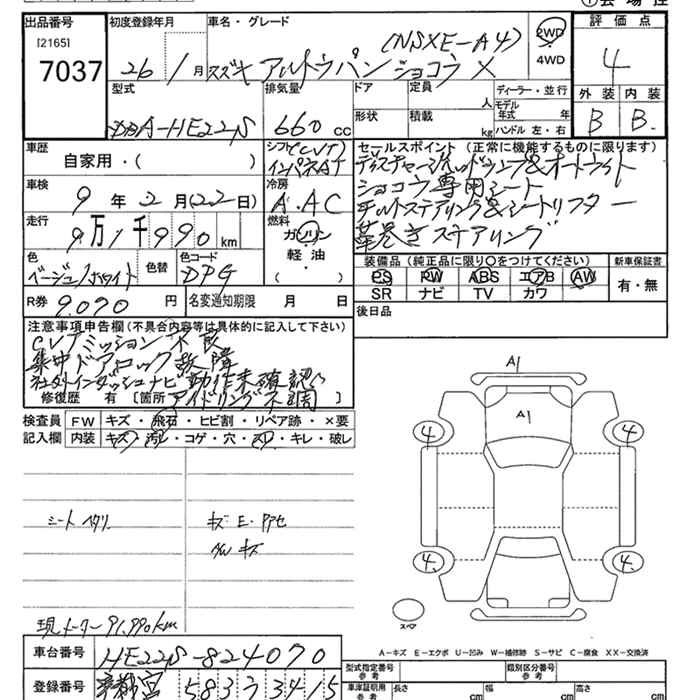 出品番号 初度登録年月 車名・グレード 評価点
[2165] (NSXE-A4) 2WD
7037 26/1月 スズキ アルトラパン ショコラ X 4WD 4
型式 排気量 ドア 定員 人 ディーラー・並行 外装 内装
DBA-HE22S 660 cc 形状 積載 kg モデル年式 年 B B
ハンドル 左・右
車歴 シフト(CVT) セールスポイント(正常に機能するものに限ります)
自家用・( ) インパネAT ディスチャージヘッドランプ&オートライト
車検 冷房 ショコラ専用シート
9年2月(22日) A.AC チルトステアリング&シートリフター
走行 燃料 革巻きステアリング
9万1千990km ガソリン
軽油
( )
色 色替 色コード 装備品(純正品に限り○をつけてください) 新車保証書
ベージュ/ホワイト DPG PS PW ABS エアB AW 有・無
SR ナビ TV カワ
R券 9.070円 名変通知期限 月 日 後日品
注意事項申告欄(不具合内容等は具体的に記入して下さい)
CVTミッション不良
集中ドアロック故障
社外インダッシュナビ動作未確認
修復歴 有 [箇所 アイドリング不調]
検査員 FW キズ・飛石・ヒビ割・リペア跡・×要
記入欄 内装 キズ・汚レ・コゲ・穴・スレ・キレ・破レ
A1
A1
4 4
シート ヘタリ キズ E.
AW キズ
4. 4.
現メーター 91,990km スペア
A-キズ E-エクボ U-凹み W-補修跡 S-サビ C-腐食 XX-交換済
車台番号 HE22S-824070
型式指定番号 参考 類別区分番号 参考
登録番号 宇都宮 583 3415
車庫証明用 参考 長さ cm 幅 cm 高さ cm